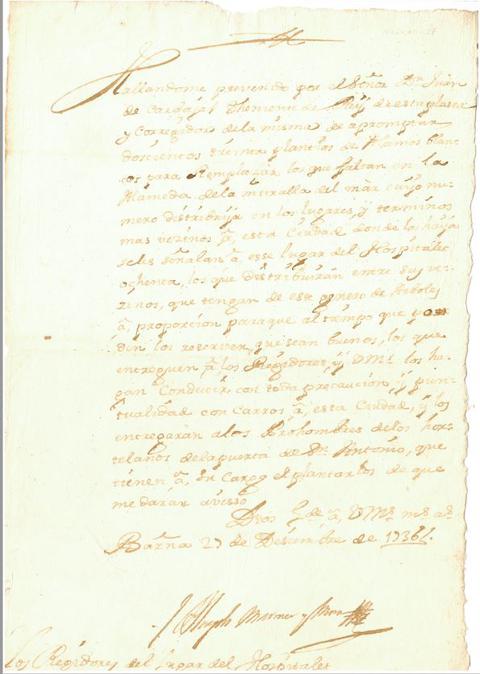 Hallandome prevenido por el Señor Dn Juan
de Carbajal Theniente de Rey de esta plaza
y Corregidor de la misma de aprompttar
doscientos treinta plantones de Alamos blan
cos para Remplazar los que faltan en la
Alameda de la muralla del mar cuyo nu-
mero destribuya en los lugares, y terminos
mas vezinos â, esta Ciudad donde los haya
se les señalan â ese lugar del Hospitalet
ochenta, los que destribuirán entre sus ve-
zinos, que tengan de este genero de Arboles
â, proporcion para que al tiempo que
los reserven, que sean buenos, los que
entreguen â los Regidores, y VMs. los ha-
gan Conducir con toda precaucion, y pun-
tualidad con carros â, esta Ciudad, y los
entregarán a los Prohombres de los hor-
telanos de la puerta de Sn. Antonio, que
tienen â, su cargo el plantarlos de que
me darán avisso
Dios gde. â, VMs. ms. as.
Barna 27 de Desiembre de 1736.
Joseph
Los Regidores del Lugar del Hospitalet